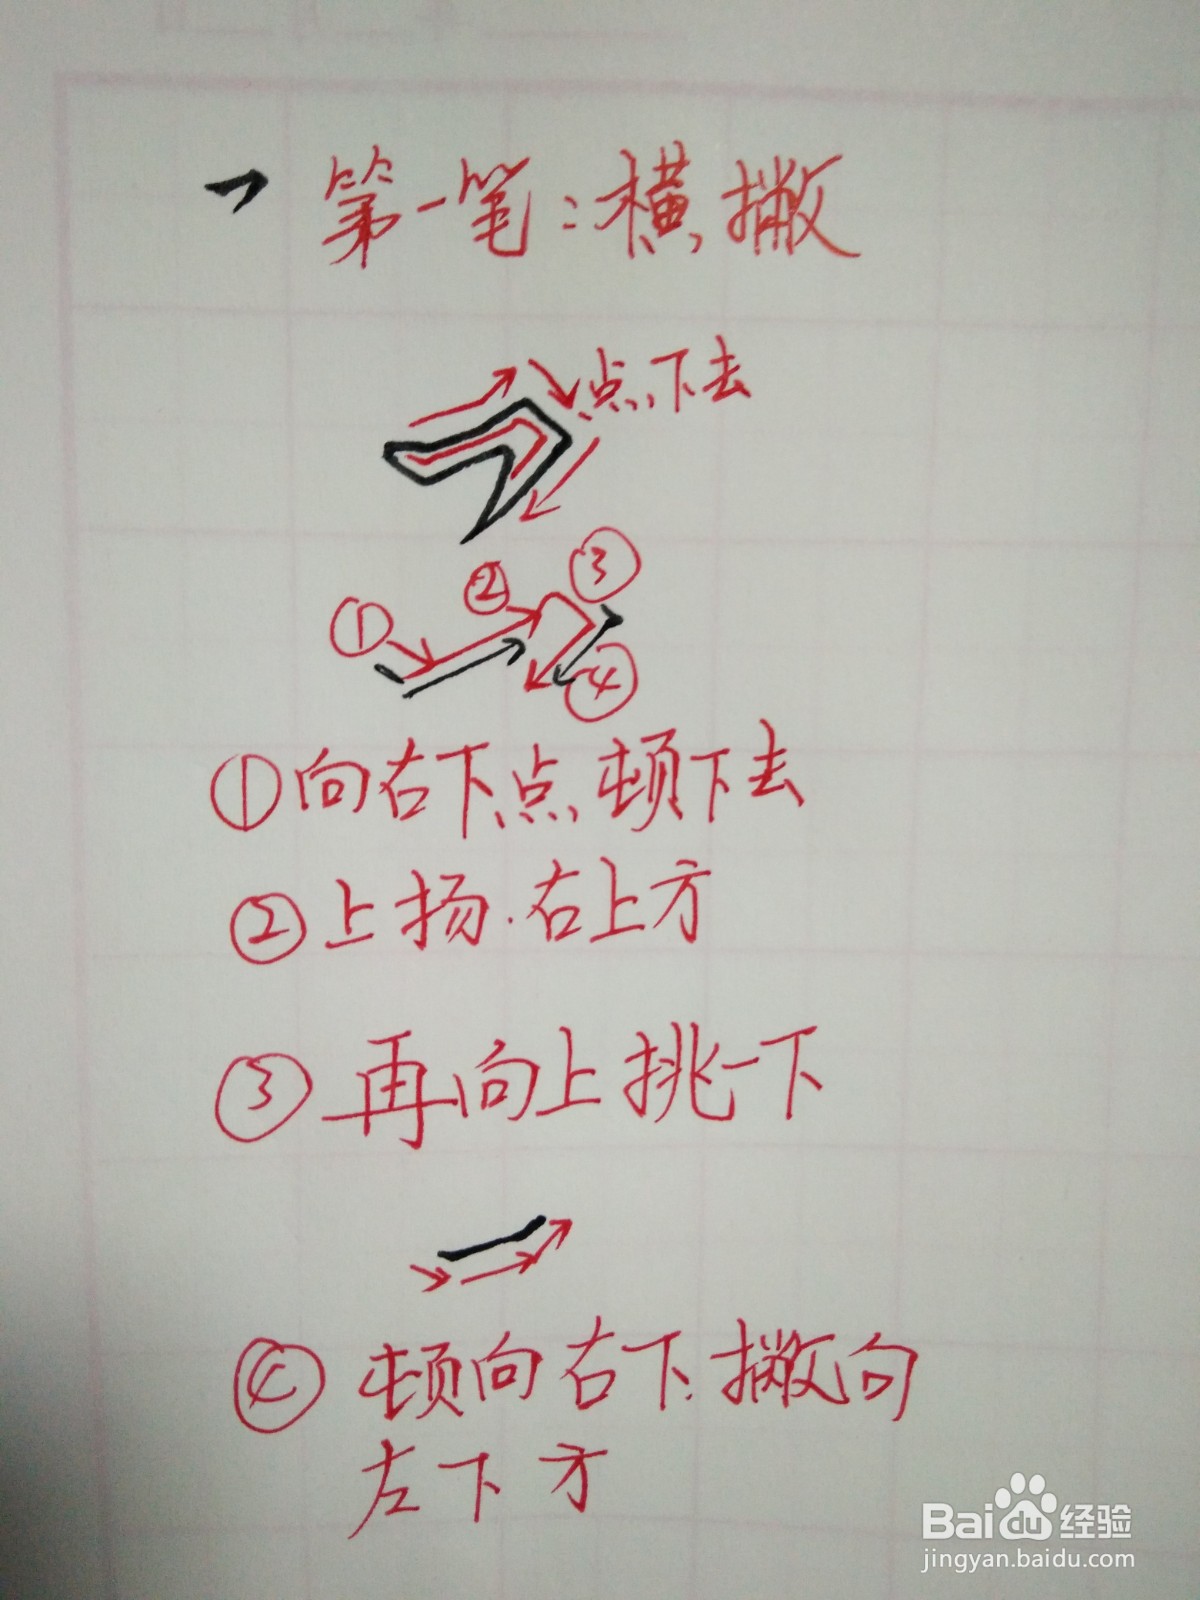 第一笔：横撇
点下去
② ③
①
④
①向右下点顿下去
②上扬.右上方
③再向上挑一下
④顿向右下.撇向
左下方
Baidu经验
jingyan.baidu.com